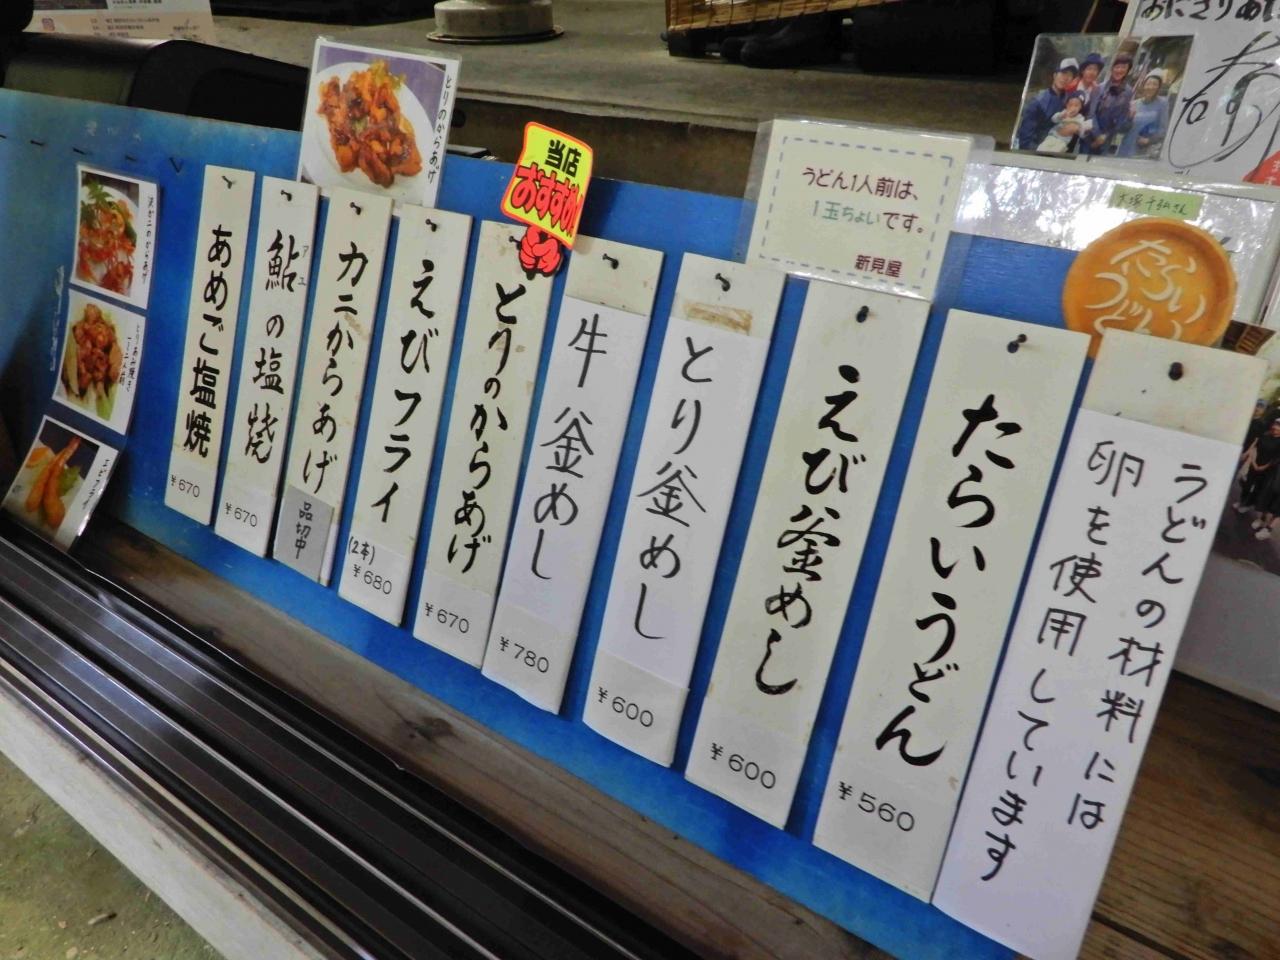 うどんの材料には
卵を使用しています
たらいうどん
¥560
えび釜めし
¥600
とり釜めし
¥600
牛釜めし
¥780
とりのからあげ
¥670
えびフライ
(2本)
¥680
カニからあげ
品切中
鮎の塩焼
アユ
¥670
あめご塩焼
¥670
当店
おすすめ!
うどん1人前は、
1玉ちょいです。
新見屋
とりのからあげ
エビフライ
たらい
うどん
大塚千弘さん